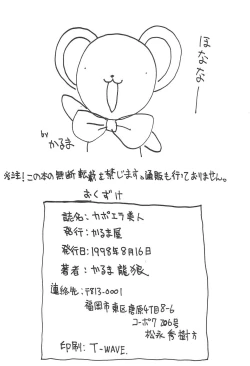 ほななー
by
かるま
※注!この本の無断転載を禁じます。通販も行っておりません。
おくずけ
誌名:カポエラ美人
発行:かるま屋
発行日:1998年8月16日
著者:かるま 龍狼
連絡先:〒813-0001
福岡市東区唐原4丁目8-6
コーポワ206号
松永秀樹方
印刷:T-WAVE.